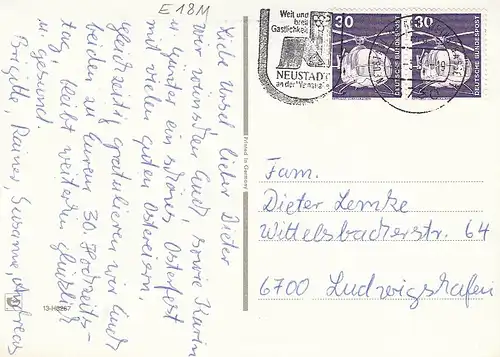 E 18M
Liebe Ursel, lieber Dieter
wir wünschen Euch, sowie Karin
u. Günter ein schönes Osterfest
mit vielen guten Ostereiern.
Gleichzeitig gratulieren wir Euch
beiden zu Eurem 30. Hochzeits-
tag bleibt weiterhin glücklich
u. gesund.
Brigitte, Rainer, Susanne, Andreas
Printed in Germany
13-H8267
Weit und
breit
Gastlichkeit
NEUSTADT
an der Weinstraße
30
DEUTSCHE BUNDESPOST
30
DEUTSCHE BUNDESPOST
Fam.
Dieter Lemke
Wittelsbacherstr. 64
6700 Ludwigshafen